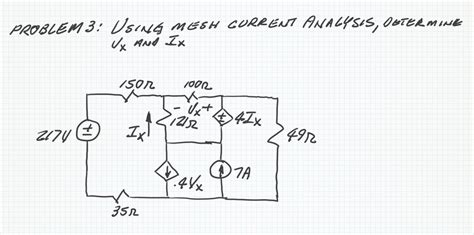 PROBLEM 3: USING MESH CURRENT ANALYSIS, DETERMINE
Vx AND Ix
150Ω 100Ω
- Vx +
217V Ix 121Ω 4Ix 49Ω
.4Vx 7A
35Ω